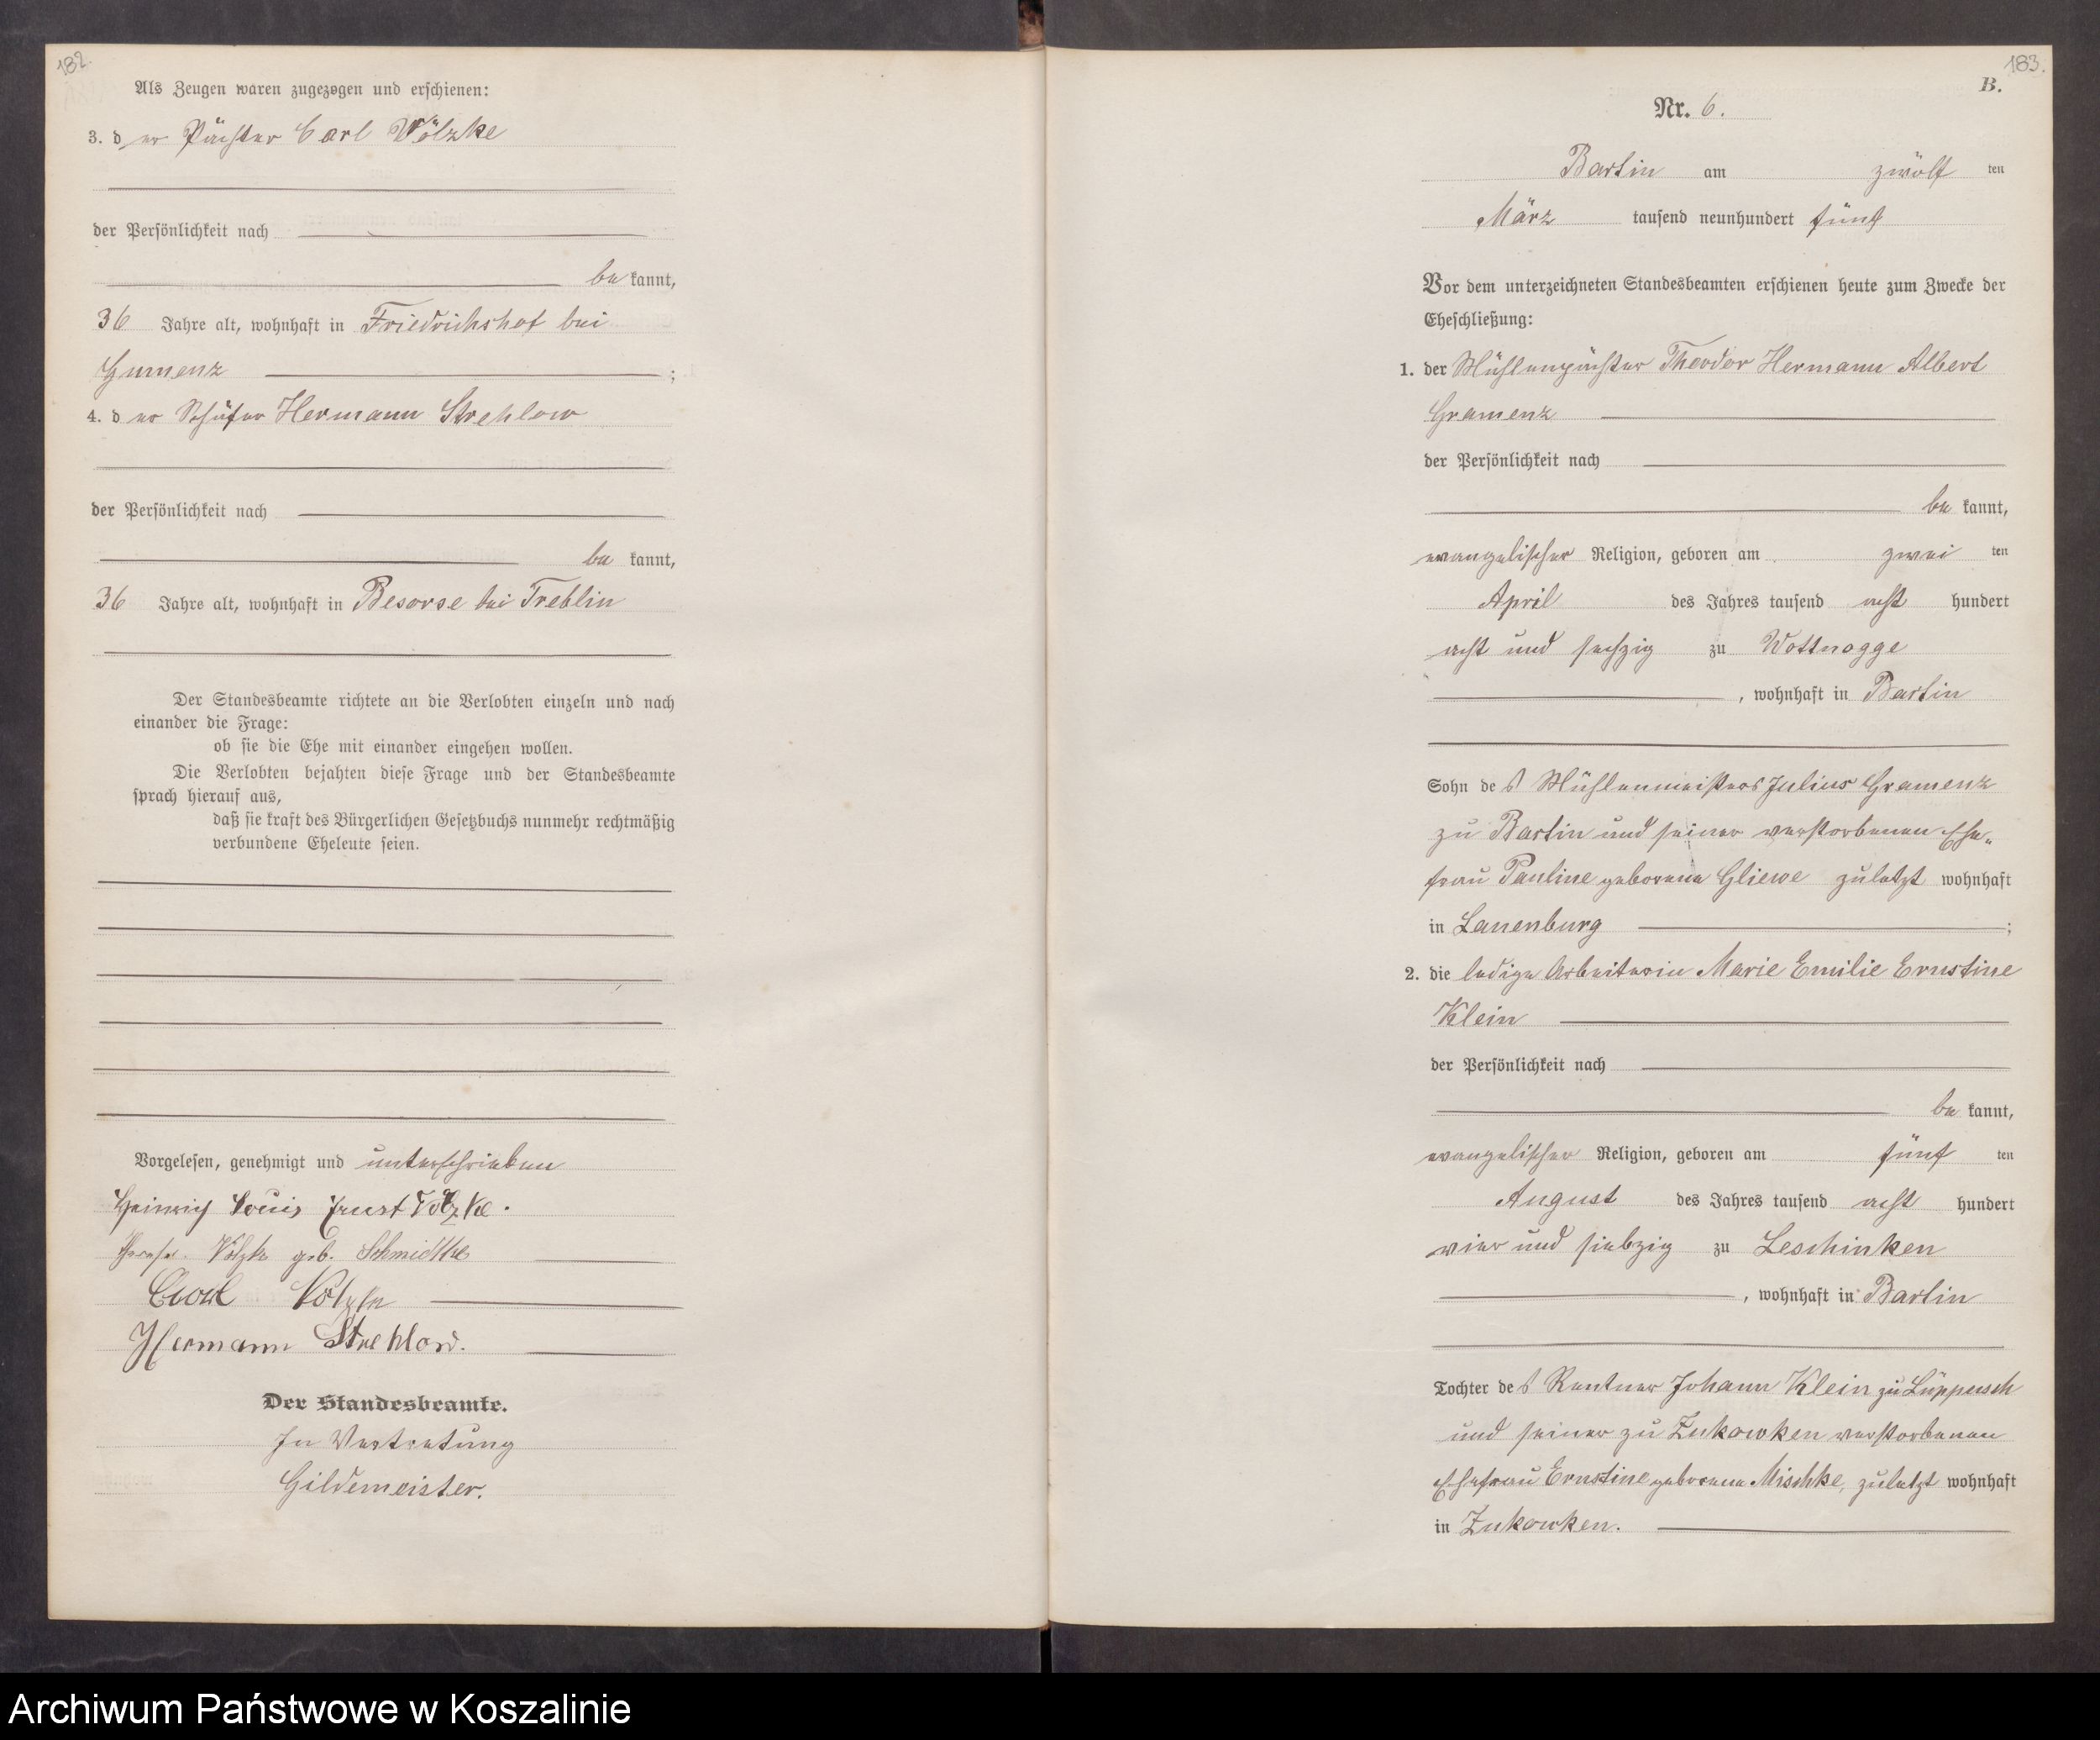 182.
Als Zeugen waren zugezogen und erschienen:
3. der Pächter Carl Völzke
der Persönlichkeit nach
be kannt,
36 Jahre alt, wohnhaft in Friedrichshof bei
Gumenz ;
4. der Schäfer Hermann Strehlow
der Persönlichkeit nach
be kannt,
36 Jahre alt, wohnhaft in Beserse bei Treblin
Der Standesbeamte richtete an die Verlobten einzeln und nach
einander die Frage:
ob sie die Ehe mit einander eingehen wollen.
Die Verlobten bejahten diese Frage und der Standesbeamte
sprach hierauf aus,
daß sie kraft des Bürgerlichen Gesetzbuchs nunmehr rechtmäßig
verbundene Eheleute seien.
Vorgelesen, genehmigt und unterschrieben
Heinrich Louis Ernst Völzke.
Völzke geb. Schmidtke
Carl Völzke
Hermann Strehlow.
Der Standesbeamte.
In Vertretung
Gildemeister.
183.
B.
Nr. 6.
Bartin am zwölf ten
März tausend neunhundert fünf
Vor dem unterzeichneten Standesbeamten erschienen heute zum Zwecke der
Eheschließung:
1. der Mühlenpächter Theodor Hermann Albert
Gramenz
der Persönlichkeit nach
be kannt,
evangelischer Religion, geboren am zwei ten
April des Jahres tausend acht hundert
acht und sechzig zu Wottnogge
, wohnhaft in Bartin
Sohn des Mühlenmeisters Julius Gramenz
zu Bartin und seiner verstorbenen Ehe-
frau Pauline geborene Gliewe zuletzt wohnhaft
in Lauenburg ;
2. die ledige Arbeiterin Marie Emilie Ernstine
Klein
der Persönlichkeit nach
be kannt,
evangelischer Religion, geboren am fünf ten
August des Jahres tausend acht hundert
vier und siebzig zu Leschinken
, wohnhaft in Bartin
Tochter des Rentner Johann Klein zu Lüppusch
und seiner zu Zukowken verstorbenen
Ehefrau Ernstine geborene Mischke, zuletzt wohnhaft
in Zukowken.
Archiwum Państwowe w Koszalinie